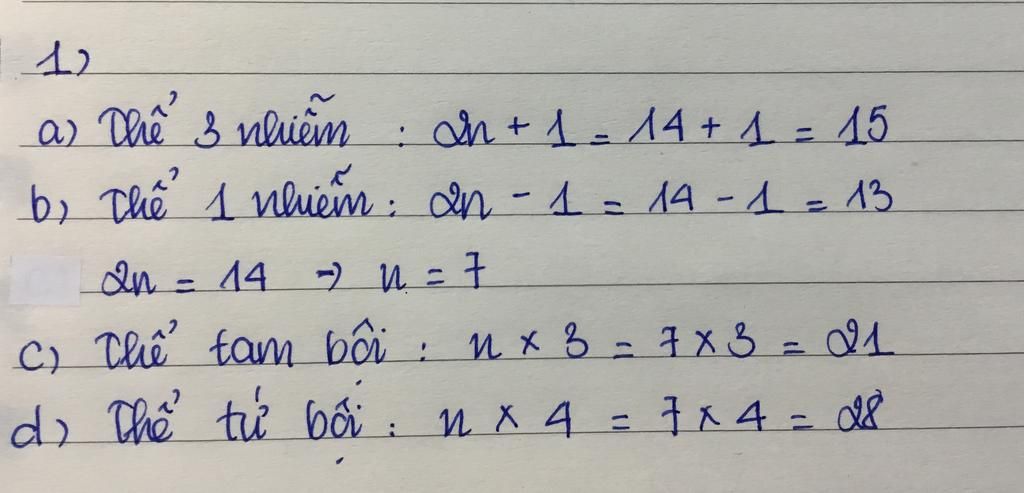 1)
a) Thể 3 nhiễm : 2n + 1 = 14 + 1 = 15
b) Thể 1 nhiễm : 2n - 1 = 14 - 1 = 13
2n = 14 → n = 7
c) Thể tam bội : n x 3 = 7 x 3 = 21
d) Thể tứ bội : n x 4 = 7 x 4 = 28